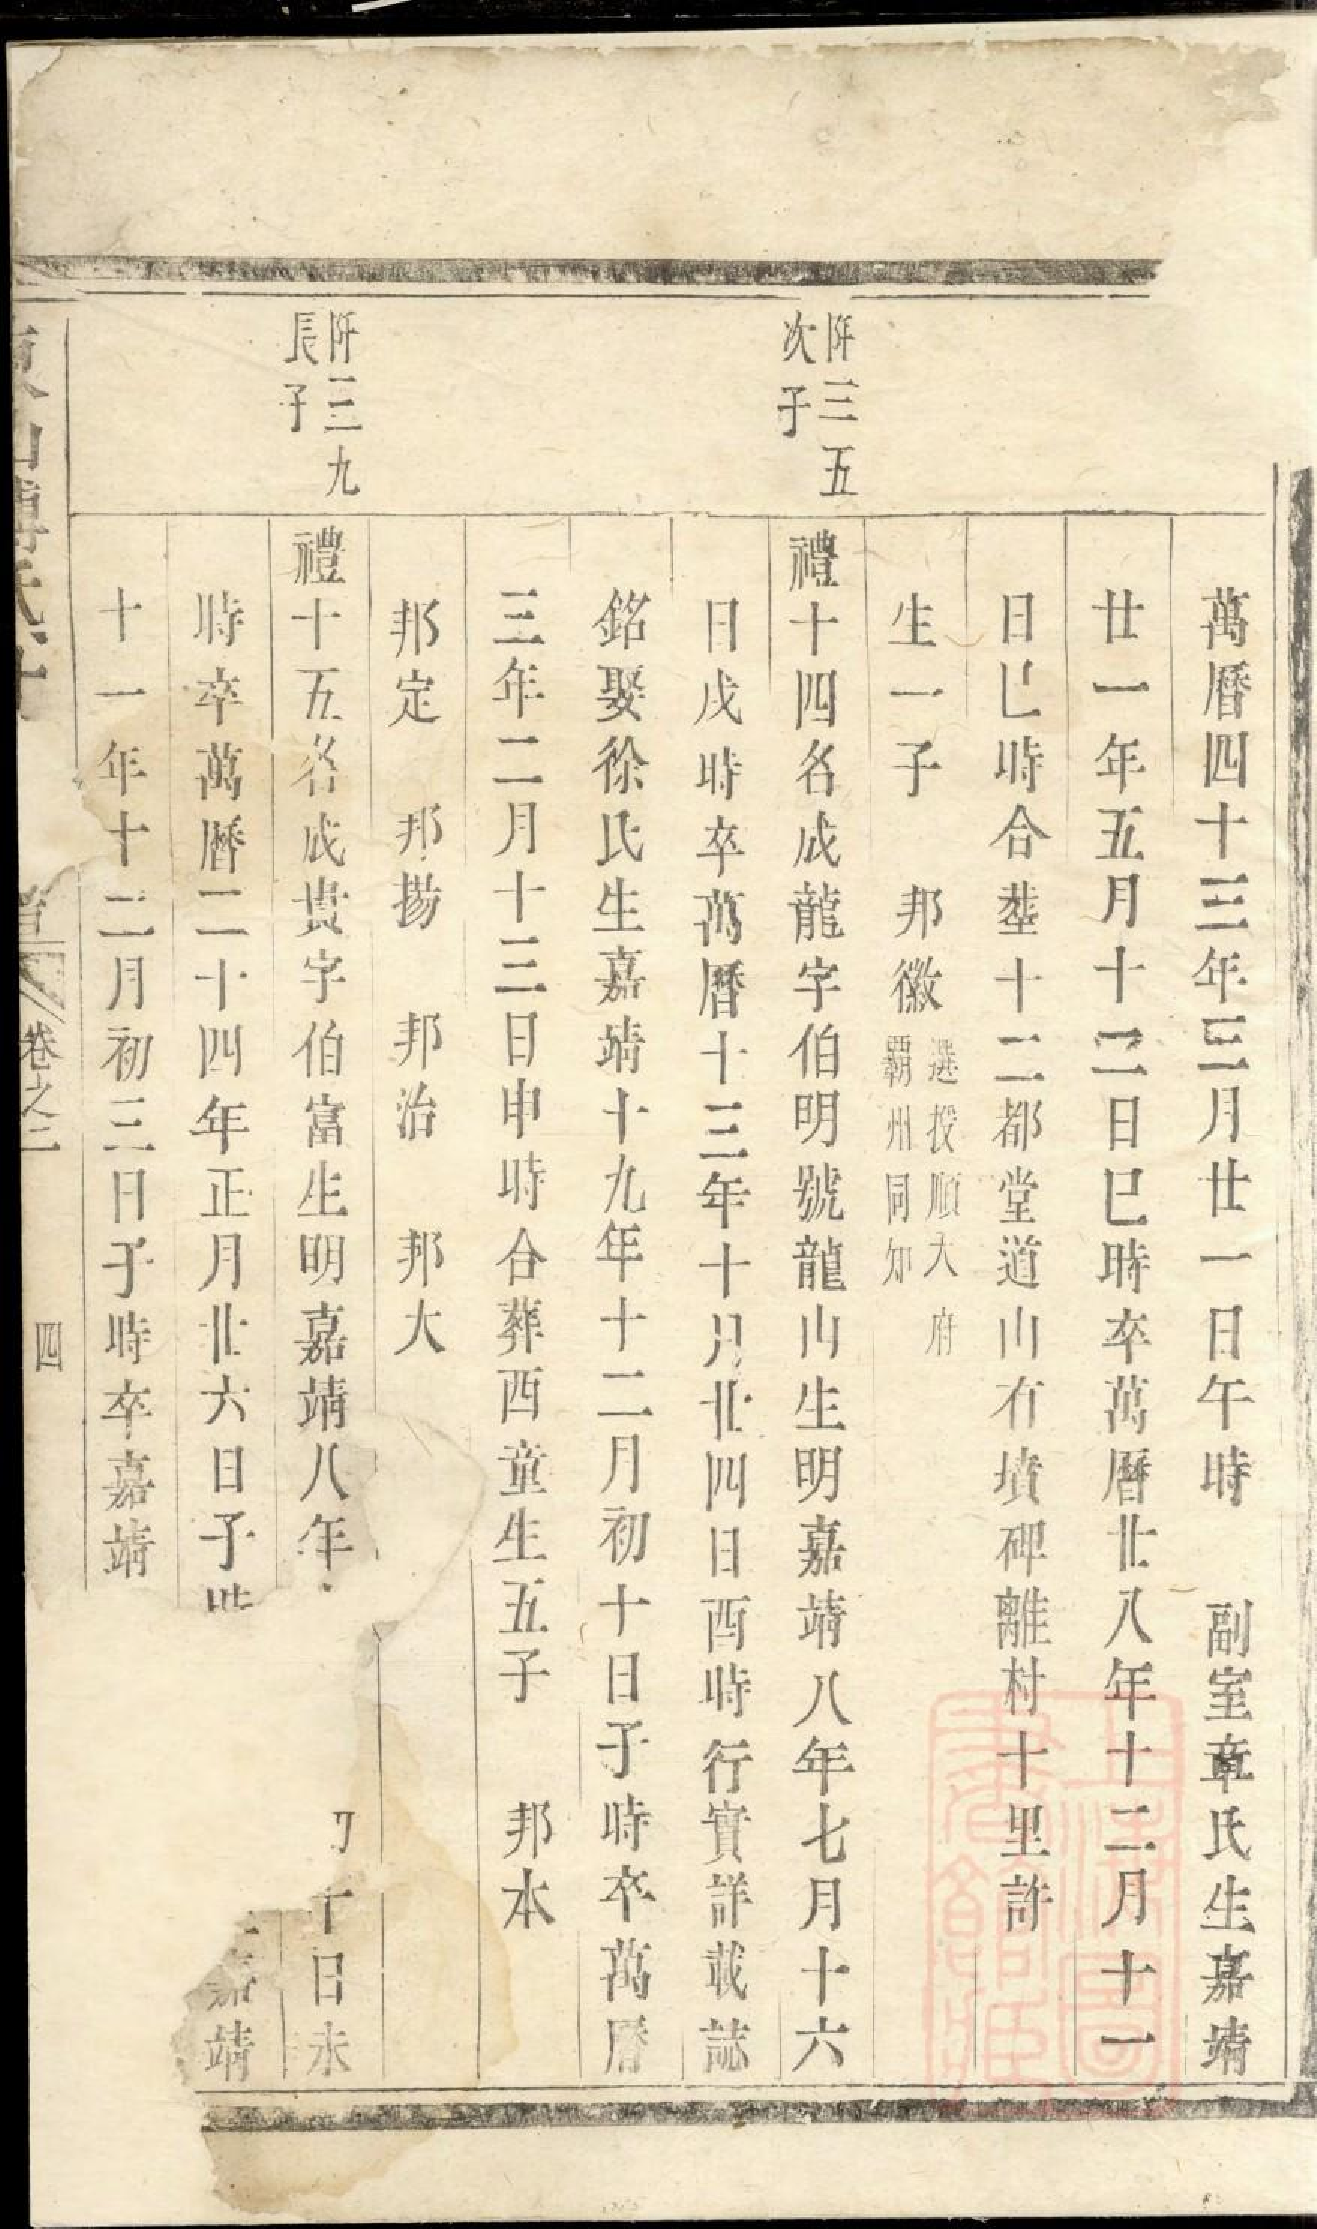 萬曆四十三年三月廿一日午時　副室章氏生嘉靖
廿一年五月十二日巳時卒萬曆廿八年十二月十一
日巳時合塟十二都堂道山有墳碑離村十里許
生一子　邦徽 選授順天府
霸州同知
阡三五
次子
禮十四名成龍字伯明號龍山生明嘉靖八年七月十六
日戌時卒萬曆十三年十月廿四日酉時行實詳載誌
銘娶徐氏生嘉靖十九年十二月初十日子時卒萬曆
三年二月十三日申時合葬西童生五子　邦本
邦定　邦揚　邦治　邦大
阡三九
長子
禮十五名成貴字伯富生明嘉靖八年 十日未
時卒萬曆二十四年正月廿六日子時 嘉靖
十一年十二月初三日子時卒嘉靖
東山傅氏宗
卷之二
四